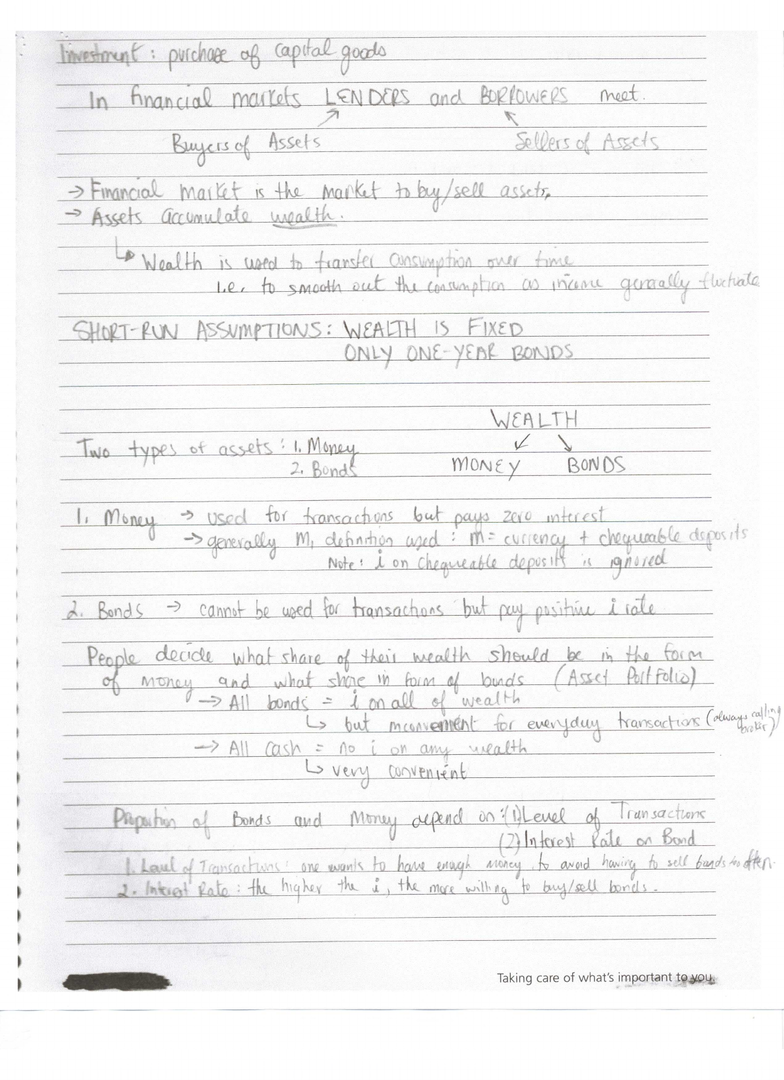 Investment : purchase of capital goods
In financial markets LENDERS and BORROWERS meet.
Buyers of Assets
Sellers of Assets
→ Financial market is the market to buy/sell assets.
→ Assets accumulate wealth.
↳ Wealth is used to transfer consumption over time
i.e. to smooth out the consumption as income generally fluctuate
SHORT-RUN ASSUMPTIONS: WEALTH IS FIXED
ONLY ONE-YEAR BONDS
WEALTH
Two types of assets : 1. Money
2. Bonds
MONEY BONDS
1. Money → used for transactions but pays zero interest
→ generally M1 definition used : M = currency + chequeable deposits
Note: i on chequeable deposits is ignored
2. Bonds → cannot be used for transactions but pay positive i rate
People decide what share of their wealth should be in the form
of money and what share in form of bonds (Asset Portfolio)
→ All bonds = i on all of wealth
↳ but inconvenient for everyday transactions (always calling broker)
→ All cash = no i on any wealth
↳ very convenient
Proportion of Bonds and Money depend on : (1) Level of Transactions
(2) Interest Rate on Bond
1. Level of Transactions : one wants to have enough money to avoid having to sell bonds too often.
2. Interest Rate : the higher the i, the more willing to buy/sell bonds.
Taking care of what's important to you